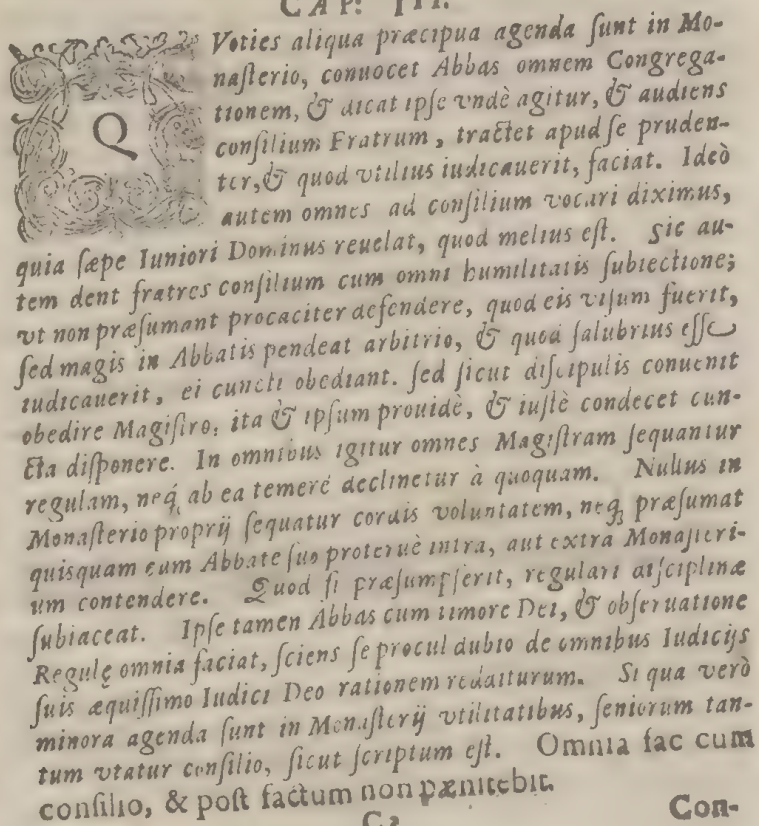 CAP: III.
QVoties aliqua præcipua agenda ſunt in Mo-
naſterio, conuocet Abbas omnem Congrega-
tionem, & dicat ipſe vndè agitur, & audiens
conſilium Fratrum, tractet apud ſe pruden-
ter, & quod vtilius iudicauerit, faciat. Ideò
autem omnes ad conſilium vocari diximus,
quia ſæpe Iuniori Dominus reuelat, quod melius eſt. Sic au-
tem dent fratres conſilium cum omni humilitatis ſubiectione;
vt non præſumant procaciter defendere, quod eis viſum fuerit,
ſed magis in Abbatis pendeat arbitrio, & quod ſalubrius eſſe
iudicauerit, ei cuncti obediant. ſed ſicut diſcipulis conuenit
obedire Magiſtro, ita & ipſum prouidè, & iuſtè condecet cun-
cta diſponere. In omnibus igitur omnes Magiſtram ſequantur
regulam, neq́; ab ea temerè declinetur à quoquam. Nullus in
Monaſterio proprij ſequatur cordis voluntatem, neq; præſumat
quisquam cum Abbate ſuo proteruè intra, aut extra Monaſteri-
um contendere. Quod ſi præſumpſerit, regulari diſciplinæ
ſubiaceat. Ipſe tamen Abbas cum timore Dei, & obſeruatione
Regulę omnia faciat, ſciens ſe procul dubio de omnibus Iudicijs
ſuis æquiſſimo Iudici Deo rationem redditurum. Si qua verò
minora agenda ſunt in Monaſterij vtilitatibus, ſeniorum tan-
tum vtatur conſilio, ſicut ſcriptum eſt. Omnia fac cum
conſilio, & poſt factum non pænitebit.
C2 Con-